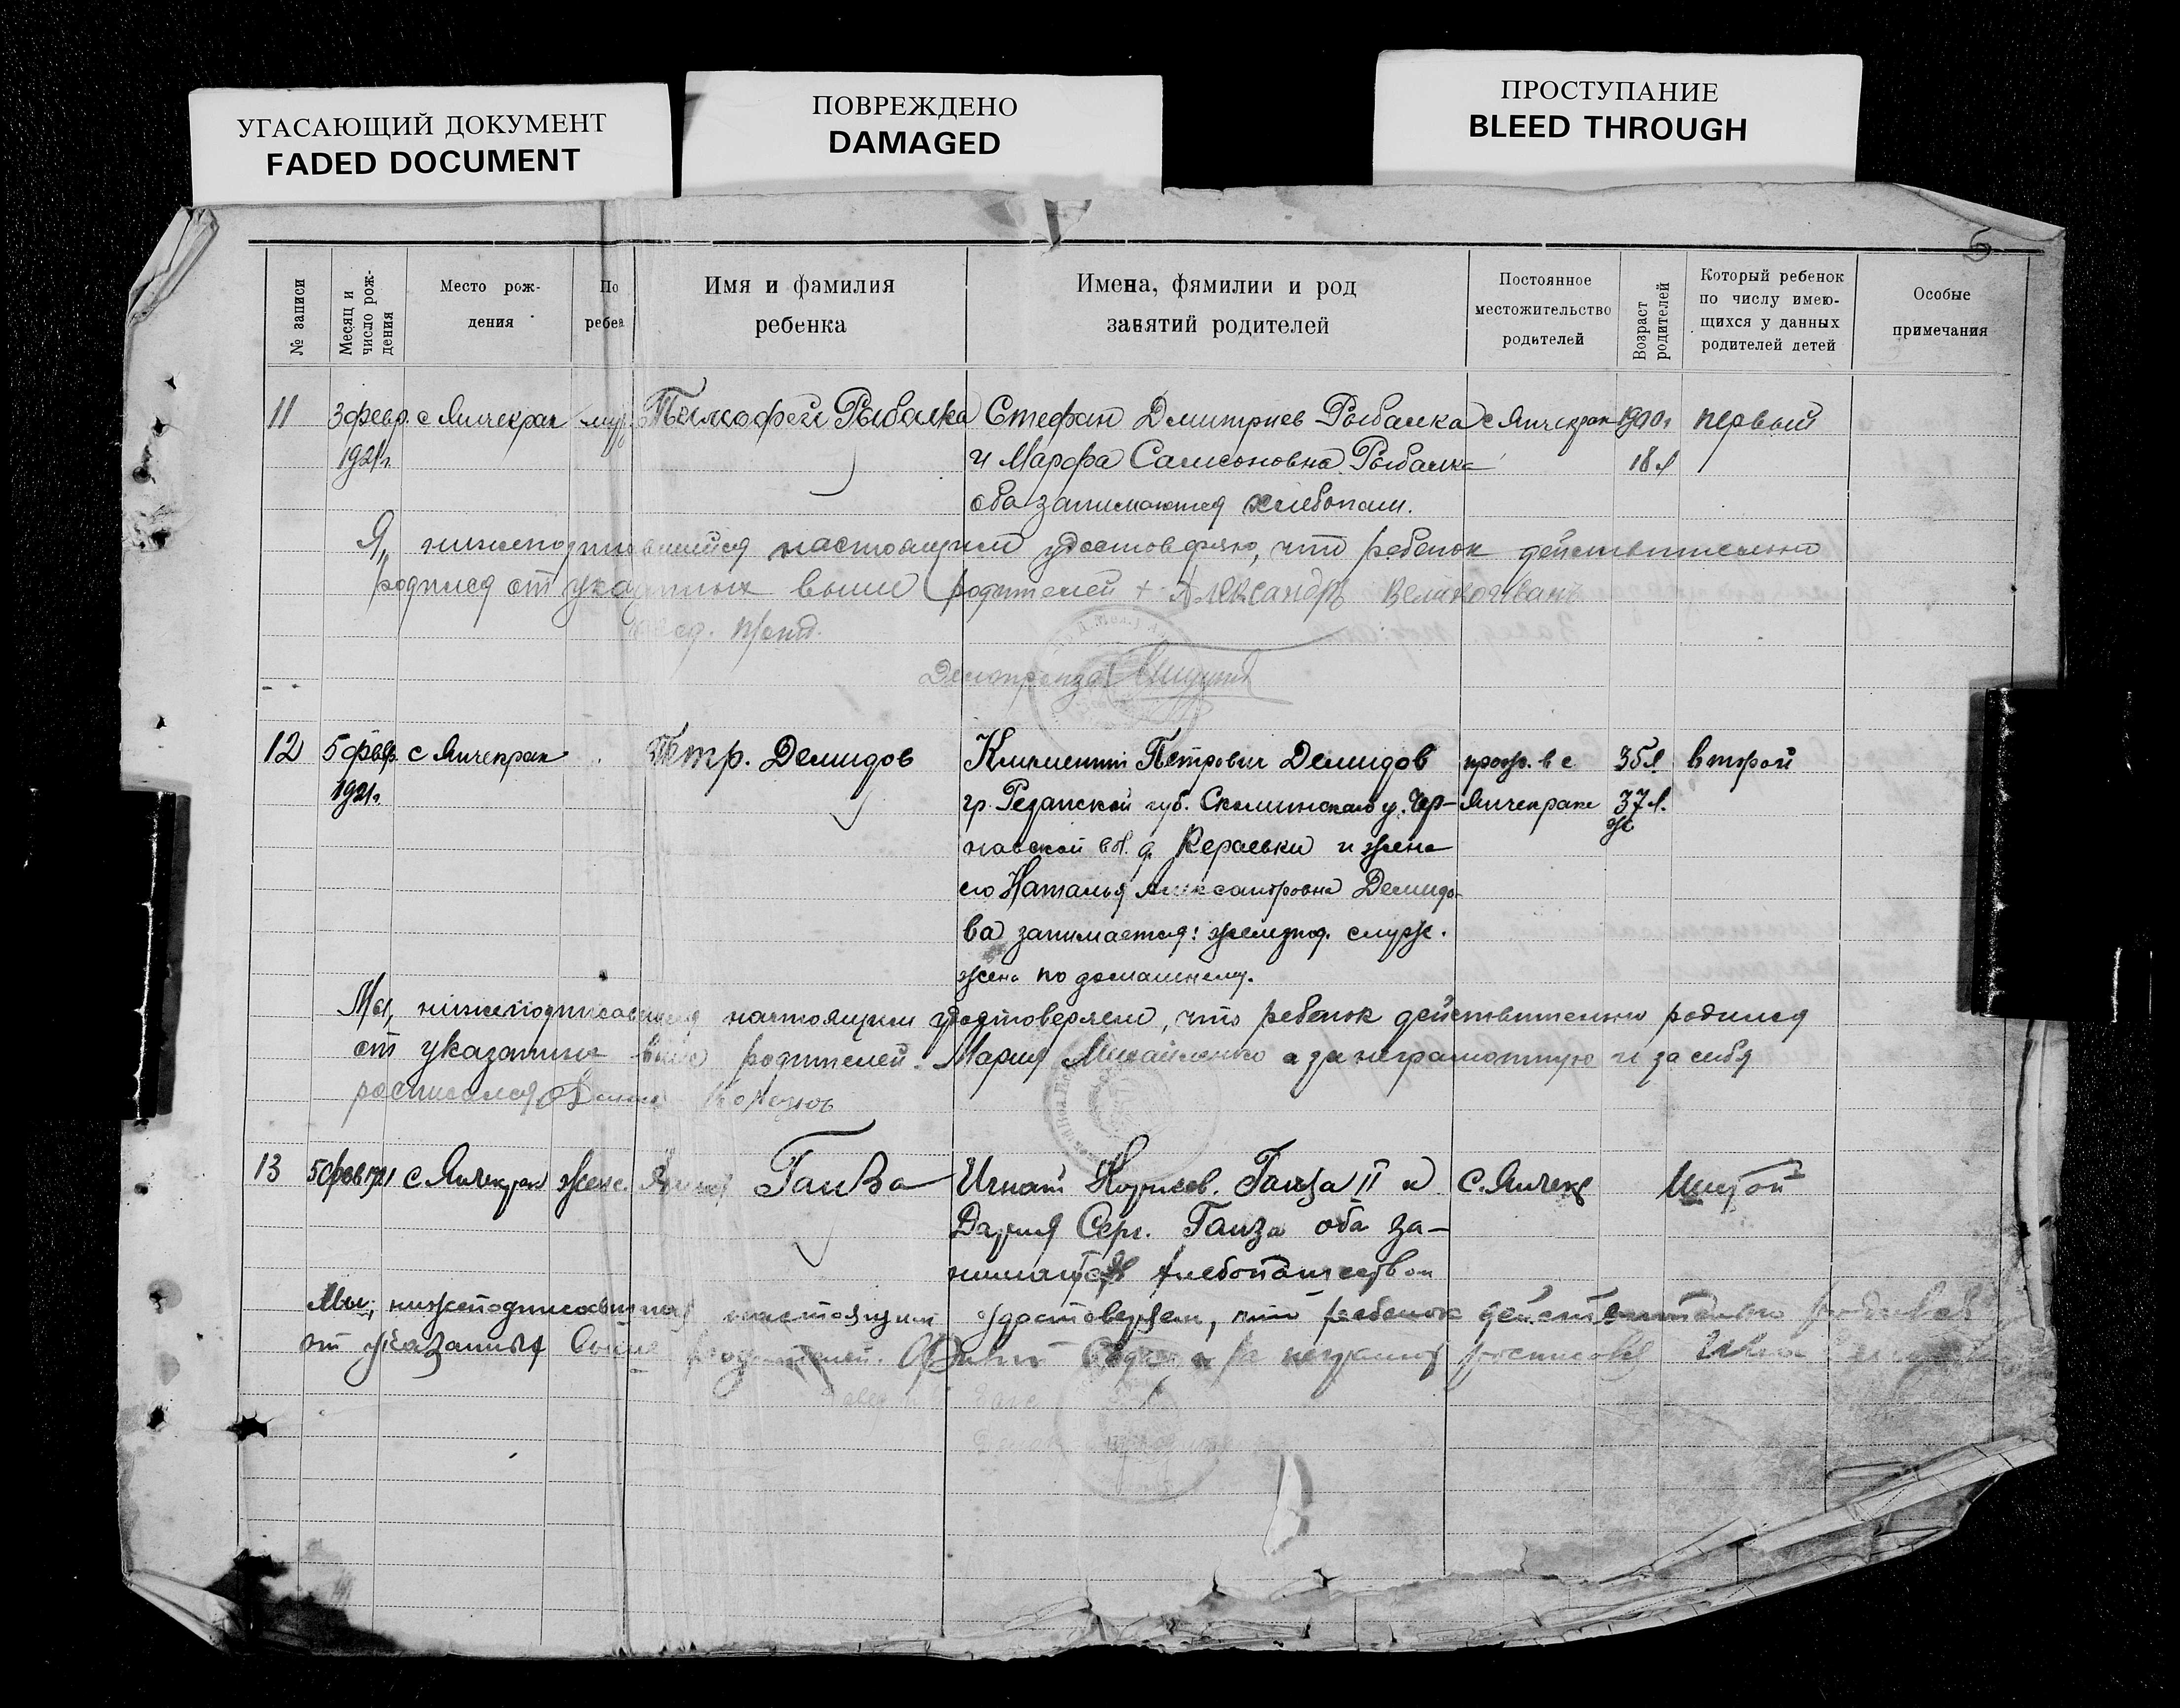 УГАСАЮЩИЙ ДОКУМЕНТ
FADED DOCUMENT
ПОВРЕЖДЕНО
DAMAGED
ПРОСТУПАНИЕ
BLEED THROUGH
№ записи
Месяц и число рождения
Место рож-
дения
По
ребен
Имя и фамилия
ребенка
Имена, фямилии и род
занятий родителей
Постоянное
местожительство
родителей
Возраст родителей
Который ребенок
по числу имею-
щихся у данных
родителей детей
Особые
примечания
11 3 февр. с Янчекрак муж. Тимофей Рыбалка Стефан Дмитриев Рыбалка с Янчекрак первый
1921 г. и Марфа Самсоновна Рыбалка 18 л
оба занимаются хлебопаш.
Я, нижеподписавшийся настоящим удостоверяю, что ребенок действительно
родился от указанных выше родителей + Александр
Делопроизв.
12 5 февр. с Янчекрак Петр. Демидов Климентий Петрович Демидов прож. в с. 35 л второй
1921 г. гр. Рязанской губ. Скопинского у. Чер- Янчекраке 37 л.
навской вл. д. и жена
его Наталья Александровна Демидо-
ва занимается: железнод. служ.
жена по домашнему.
Мы, нижеподписавшиеся настоящим удостоверяем, что ребенок действительно родился
от указанных выше родителей. Мария Михайленко а за неграмотную и за себя
расписался
13 5 фев 1921 с. Янчекрак женс. Ганза Игнат Ганза II и с. Янчекр Шестой
Дария Серг. Ганза оба за-
нимаются хлебопашеством
Мы, нижеподписавшиеся настоящим удостоверяем, что ребенок действительно
от указанных выше родителей. за неграмот расписался